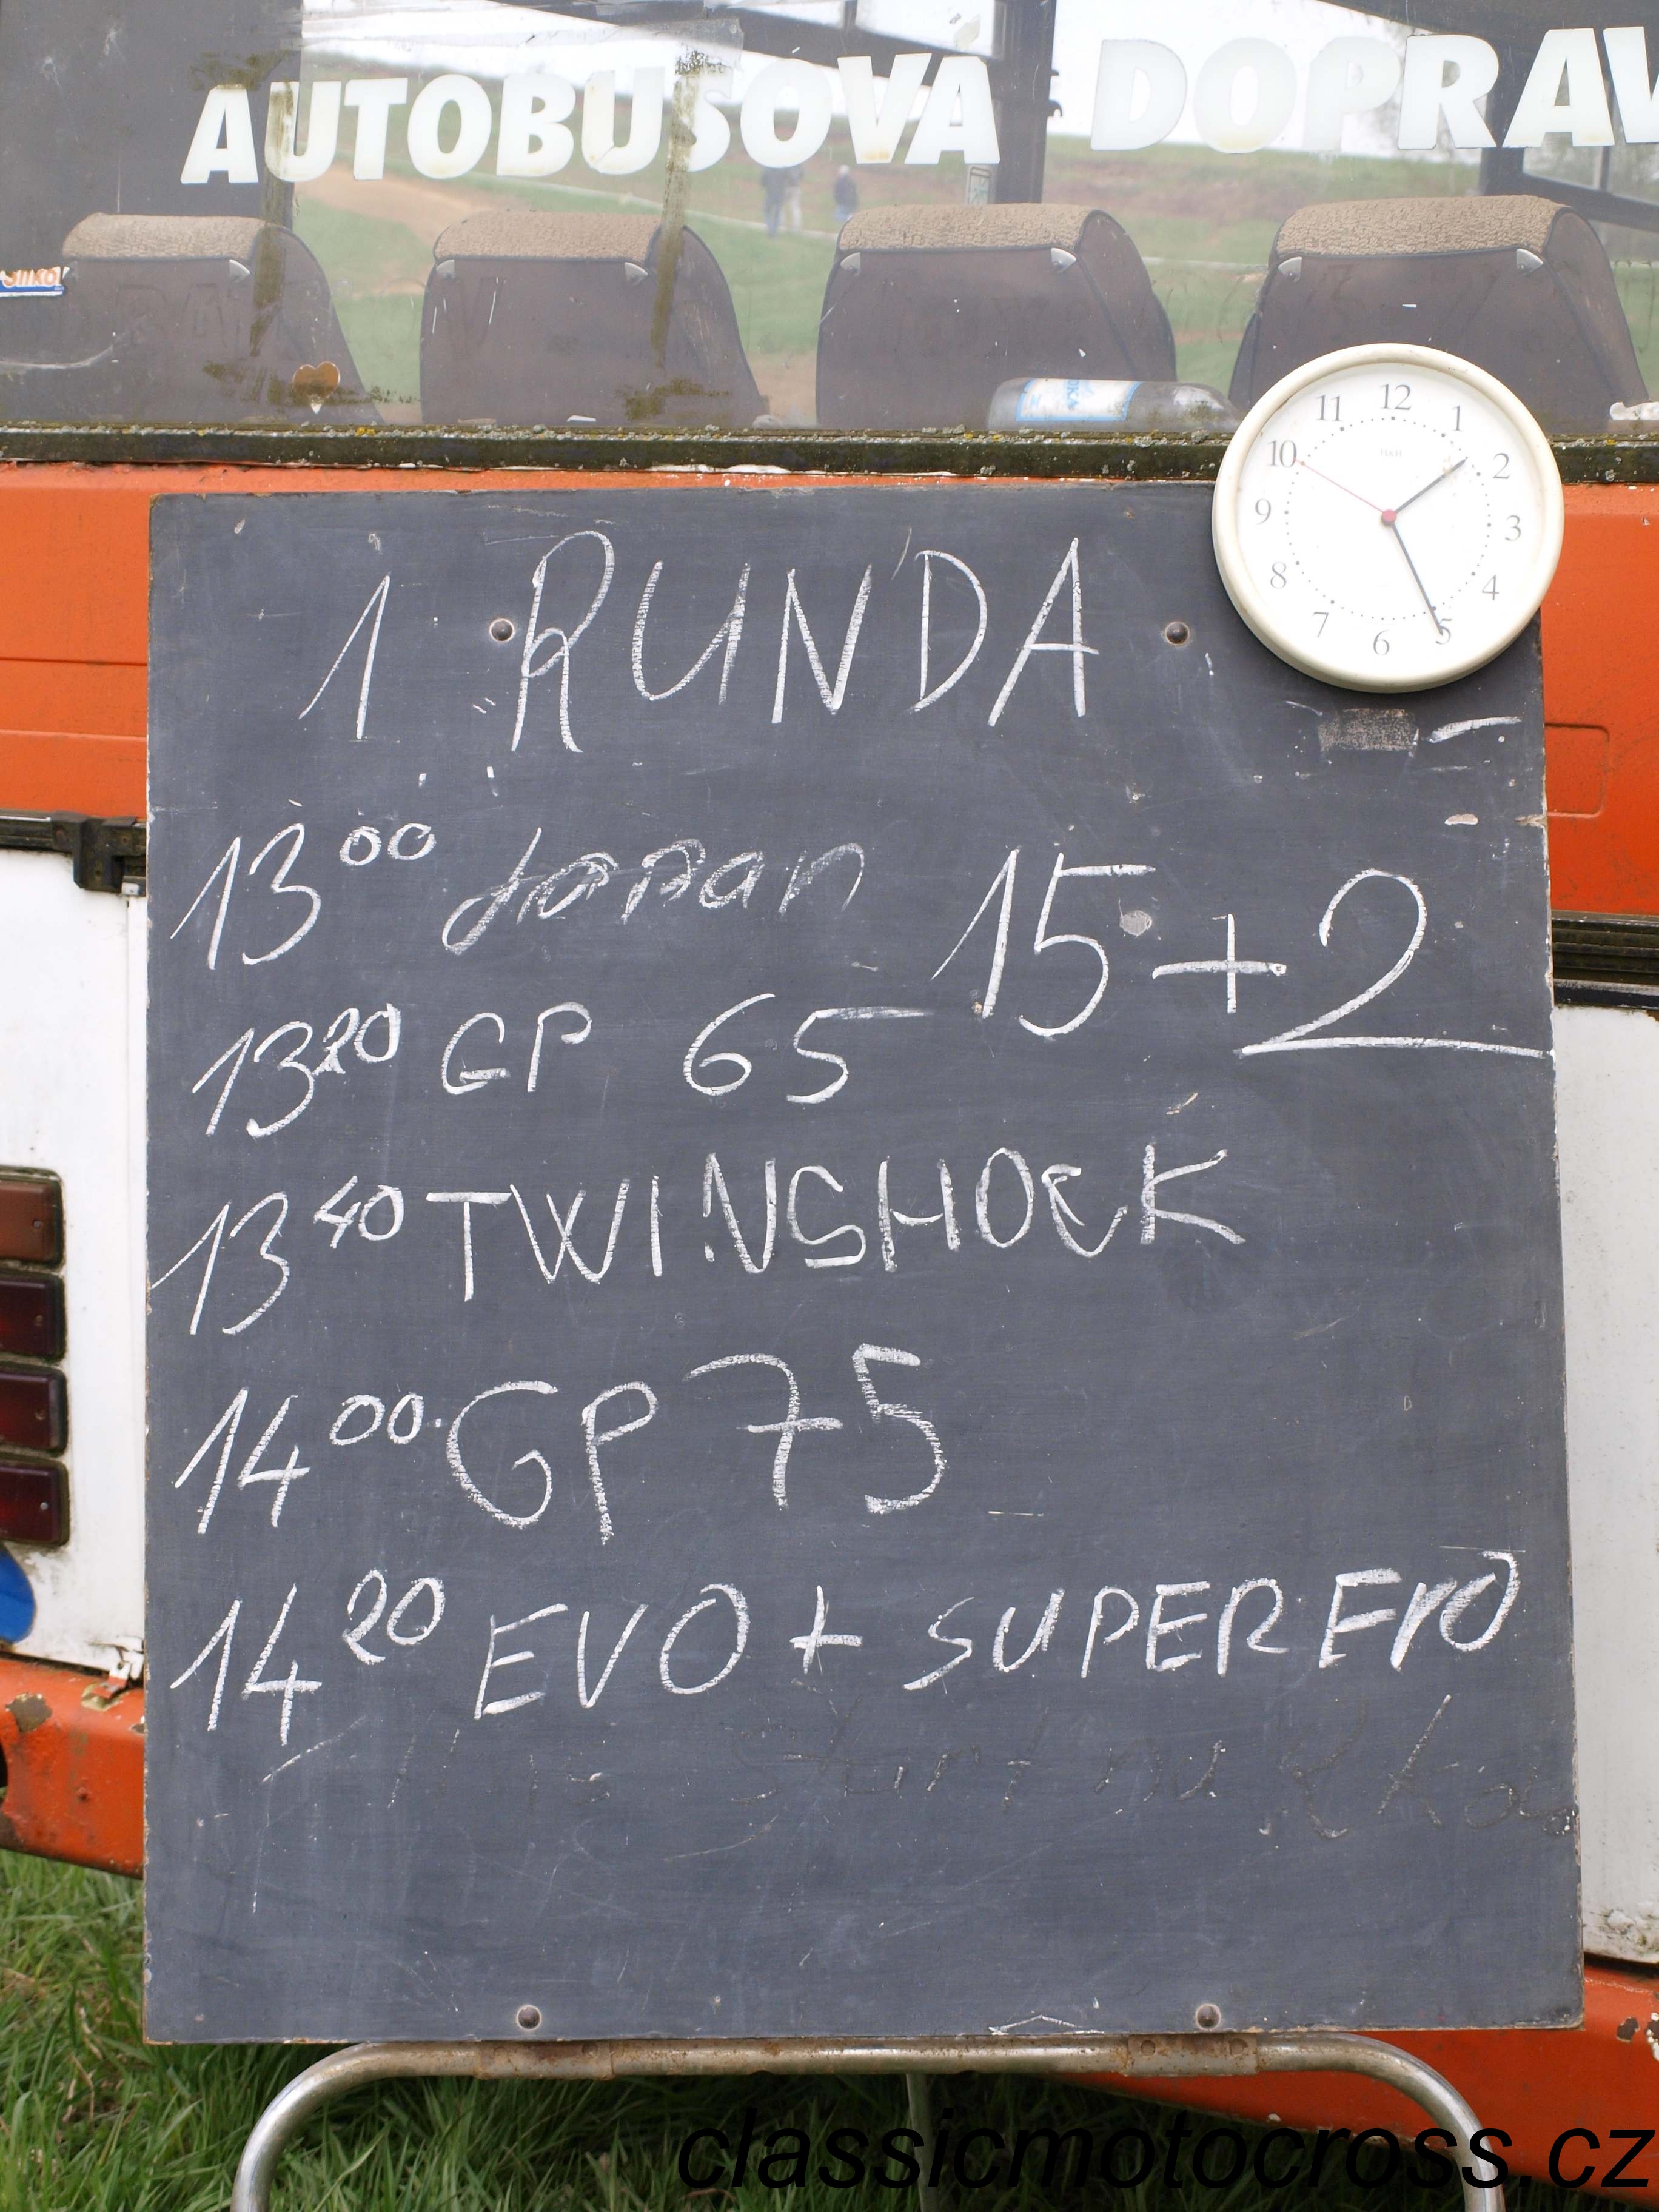 AUTOBUSOVA DOPRAV
12
1
2
3
4
5
6
7
8
9
10
11
H&H
1 RUNDA
13 00 Japan 15+2
13 20 GP 65
13 40 TWINSHOCK
14 00 GP 75
14 20 EVO + SUPER EVO
start na
classicmotocross.cz